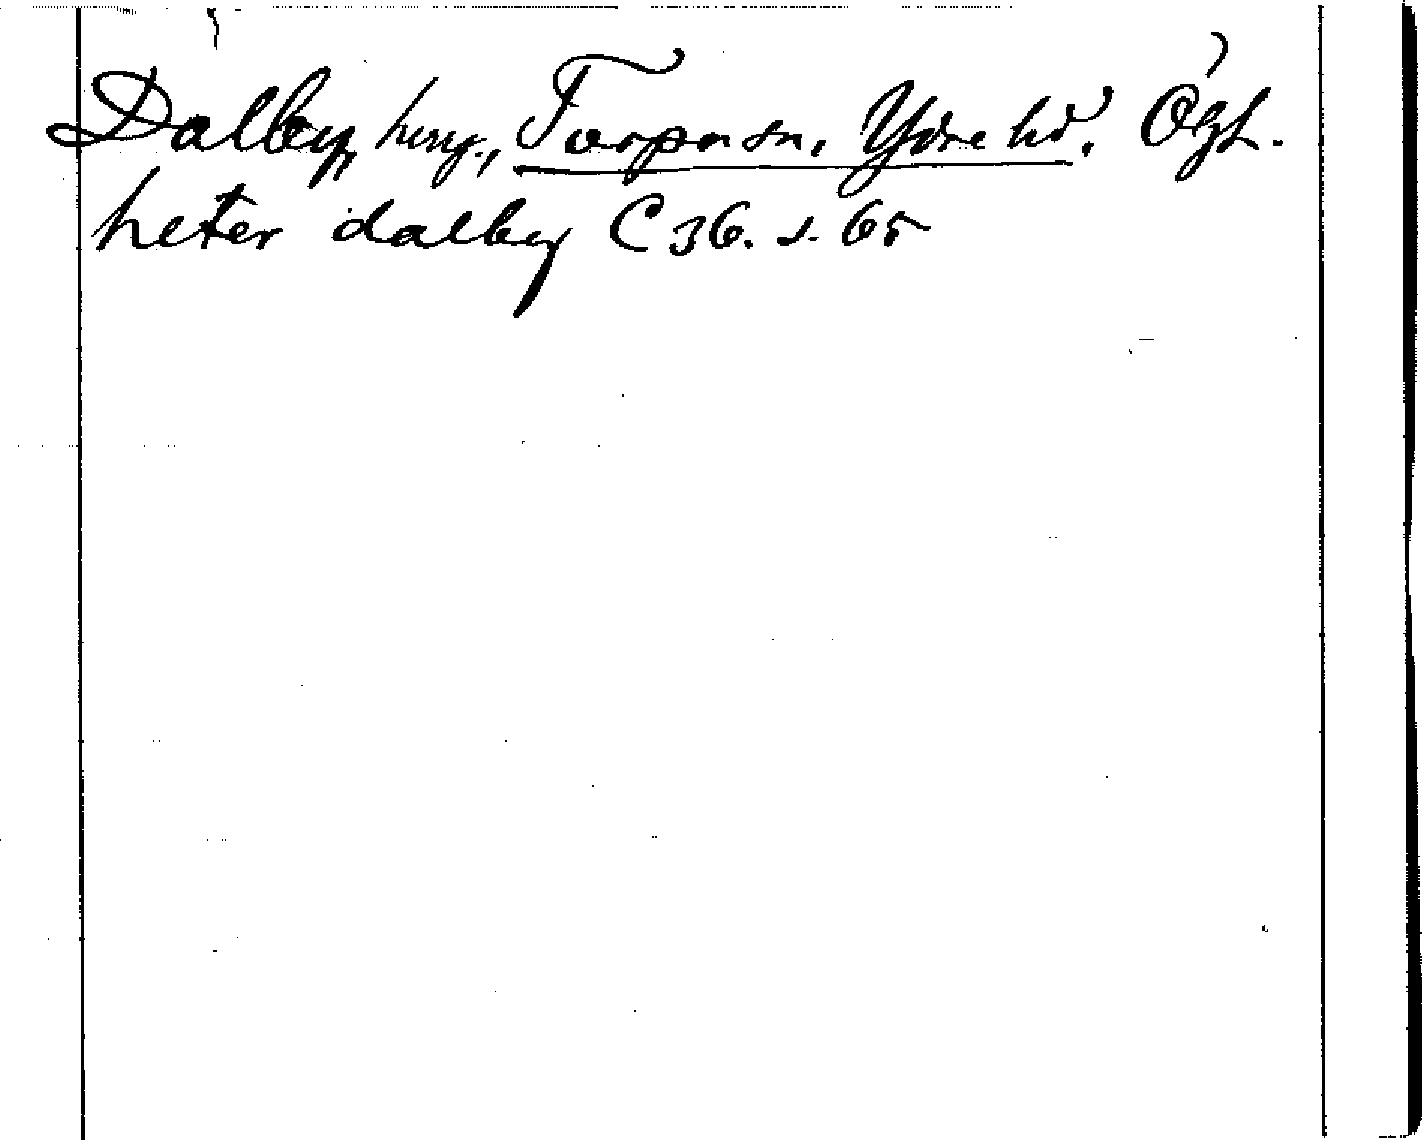 Dalby, herrg., Torpa sn, Ydre hd, Ögtl.
heter dalby C 36. s. 65